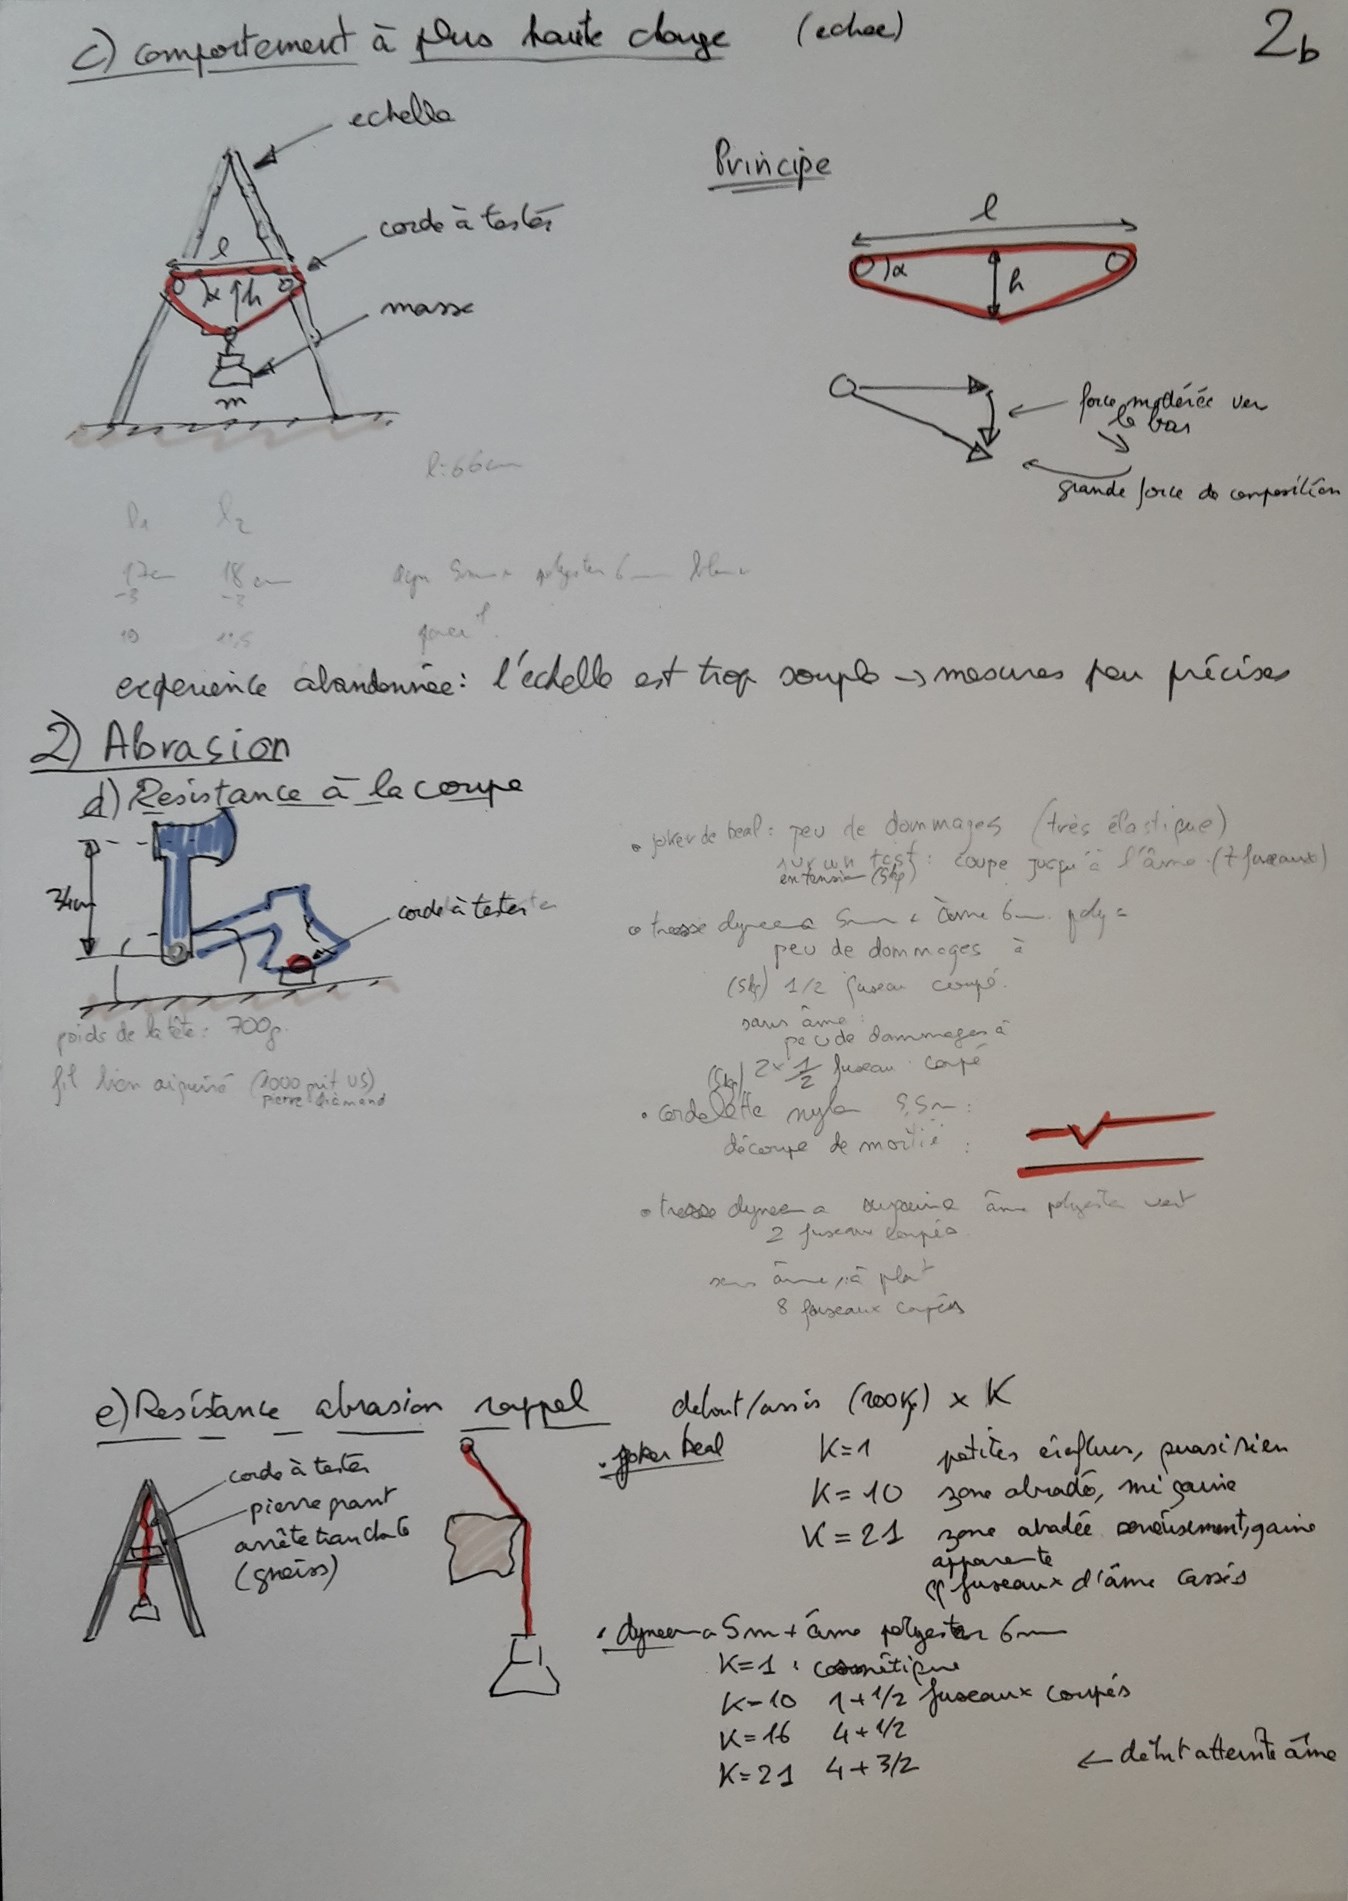 c) comportement à plus haute charge (echec)
2b
echelle
corde à tester
masse
l
α h
m
Principe
l
α h
force modérée vers
le bas
grande force de composition
l: 66cm
l1 l2
17cm 18cm
-3 -2
5mm polyester 6mm
experience abandonnée: l'echelle est trop souple → mesures peu précises
2) Abrasion
d) Resistance à la coupe
34cm
corde à tester
poids de la tête: 700g.
fil bien aiguisé (1000 grit US)
pierre diamand
• joker de beal: peu de dommages (très élastique)
sur un test: coupe jusqu'à l'âme (7 fuseaux)
en tension (5kg)
• tresse dyneema 5mm + âme 6mm poly
peu de dommages à
(5kg) 1/2 fuseau coupé.
sans âme:
peu de dommages à
(5kg) 2x 1/2 fuseau coupé
• cordelette nylon 5,5m:
découpe de moitié:
• tresse dyneema âme polyester vert
2 fuseaux coupés
sans âme, à plat
8 fuseaux coupés
e) Resistance abrasion rappel
debout/assis (100kg) x K
corde à tester
pierre
arrête tranchante
(gneiss)
• joker beal
K=1 petites éraflures, quasi rien
K=10 zone abradé, mi gaine
K=21 zone abradée sérieusement, gaine
apparente
fuseaux d'âme cassés
• dyneema 5m + âme polyester 6mm
K=1 : cosmétique
K=10 1+1/2 fuseaux coupés
K=16 4+1/2
K=21 4+3/2
← début atteinte âme